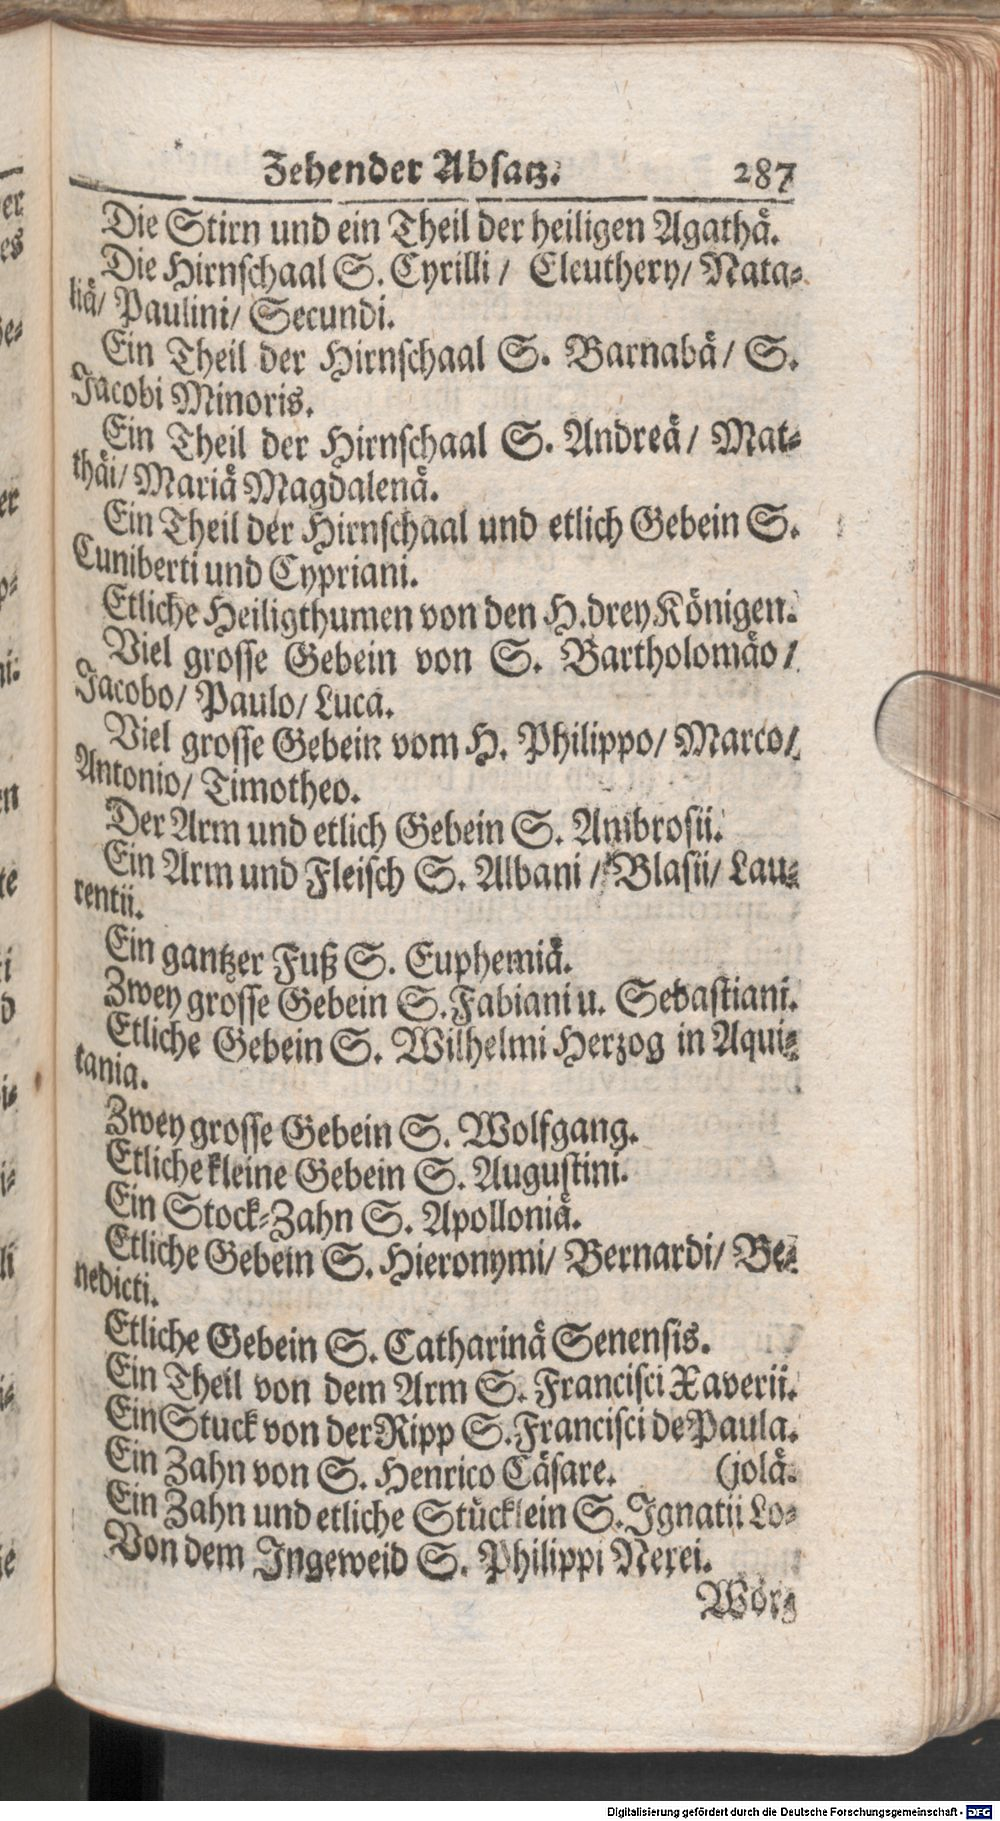 Zehender Absatz. 287
Die Stirn und ein Theil der heiligen Agathä.
Die Hirnschaal S. Cyrilli / Eleuthery/ Nata-
liä/ Paulini/ Secundi.
Ein Theil der Hirnschaal S. Barnabä/ S.
Jacobi Minoris.
Ein Theil der Hirnschaal S. Andreä/ Mat-
thäi/ Mariä Magdalenä.
Ein Theil der Hirnschaal und etlich Gebein S.
Cuniberti und Cypriani.
Etliche Heiligthumen von den H. drey Königen.
Viel grosse Gebein von S. Bartholomäo /
Jacobo/ Paulo/ Luca.
Viel grosse Gebein vom H. Philippo/ Marco/
Antonio/ Timotheo.
Der Arm und etlich Gebein S. Ambrosii.
Ein Arm und Fleisch S. Albani / Blasii/ Lau-
rentii.
Ein gantzer Fuß S. Euphemiä.
Zwey grosse Gebein S. Fabiani u. Sebastiani.
Etliche Gebein S. Wilhelmi Herzog in Aqui-
tania.
Zwey grosse Gebein S. Wolfgang.
Etliche kleine Gebein S. Augustini.
Ein Stock-Zahn S. Apolloniä.
Etliche Gebein S. Hieronymi/ Bernardi/ Be-
nedicti.
Etliche Gebein S. Catharinä Senensis.
Ein Theil von dem Arm S. Francisci Xaverii.
Ein Stuck von der Ripp S. Francisci de Paula.
Ein Zahn von S. Henrico Cäsare. (jolä.
Ein Zahn und etliche Stücklein S. Ignatii Lo-
Von dem Ingeweid S. Philippi Nerei.
Wör-
Digitalisierung gefördert durch die Deutsche Forschungsgemeinschaft - DFG